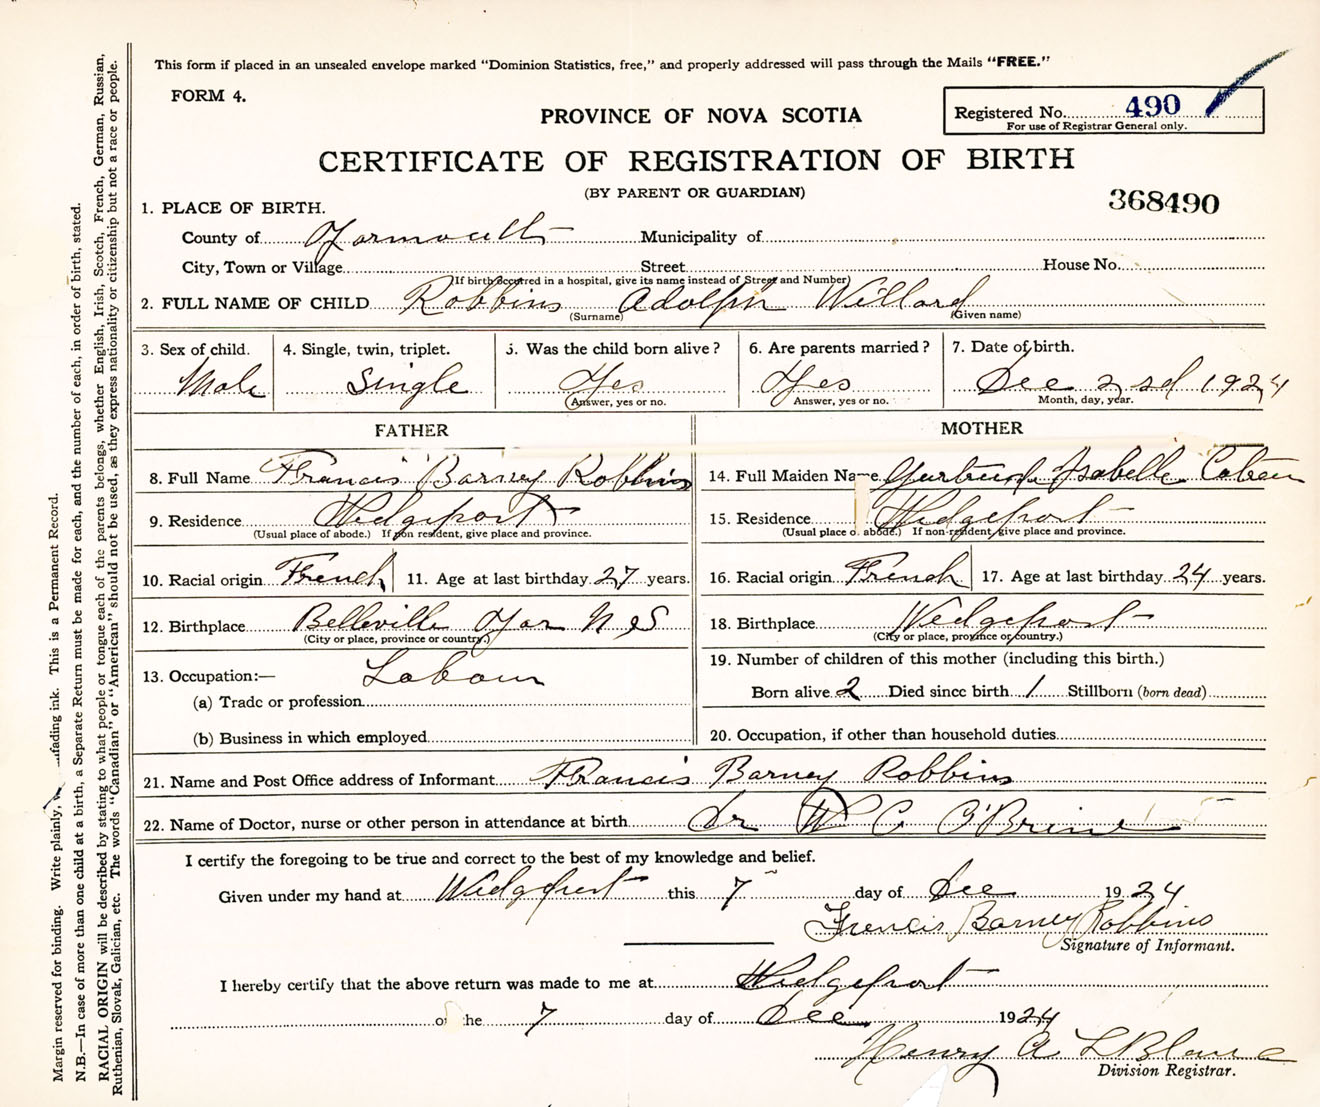 This form if placed in an unsealed envelope marked "Dominion Statistics, free," and properly addressed will pass through the Mails "FREE."
FORM 4.
PROVINCE OF NOVA SCOTIA
Registered No. 490
For use of Registrar General only.
CERTIFICATE OF REGISTRATION OF BIRTH
(BY PARENT OR GUARDIAN)
368490
1. PLACE OF BIRTH.
County of Yarmouth Municipality of
City, Town or Village Street House No.
(If birth occurred in a hospital, give its name instead of Street and Number)
2. FULL NAME OF CHILD Robbins Adolph Willard
(Surname) (Given name)
3. Sex of child. 4. Single, twin, triplet. 5. Was the child born alive? 6. Are parents married? 7. Date of birth.
Male Single Yes Yes Dec 2nd 1924
(Answer, yes or no. Answer, yes or no. Month, day, year.
FATHER MOTHER
8. Full Name Francis Barney Robbins 14. Full Maiden Name Gertrud Isabelle
9. Residence Wedgeport 15. Residence Wedgeport
(Usual place of abode.) If non resident, give place and province. (Usual place o. abode.) If non-resident, give place and province.
10. Racial origin French 11. Age at last birthday 27 years. 16. Racial origin French 17. Age at last birthday 24 years.
12. Birthplace Belleville Yar N S 18. Birthplace Wedgeport
(City or place, province or country.) (City or place, province or country.)
13. Occupation:— Labour
(a) Trade or profession
(b) Business in which employed
19. Number of children of this mother (including this birth.)
Born alive 2 Died since birth 1 Stillborn (born dead)
20. Occupation, if other than household duties
21. Name and Post Office address of Informant Francis Barney Robbins
22. Name of Doctor, nurse or other person in attendance at birth Dr W C O'Brine
I certify the foregoing to be true and correct to the best of my knowledge and belief.
Given under my hand at Wedgeport this 7 day of Dec 1924
Francis Barney Robbins
Signature of Informant.
I hereby certify that the above return was made to me at Wedgeport
the 7 day of Dec 1924
Henry A LBlanc
Division Registrar.
Margin reserved for binding. Write plainly, fading ink. This is a Permanent Record.
N.B.—In case of more than one child at a birth, a Separate Return must be made for each, and the number of each, in order of birth, stated.
RACIAL ORIGIN will be described by stating to what people or tongue each of the parents belongs, whether English, Irish, Scotch, French, German, Russian,
Ruthenian, Slovak, Galician, etc. The words "Canadian" or "American" should not be used, as they express nationality or citizenship but not a race or people.